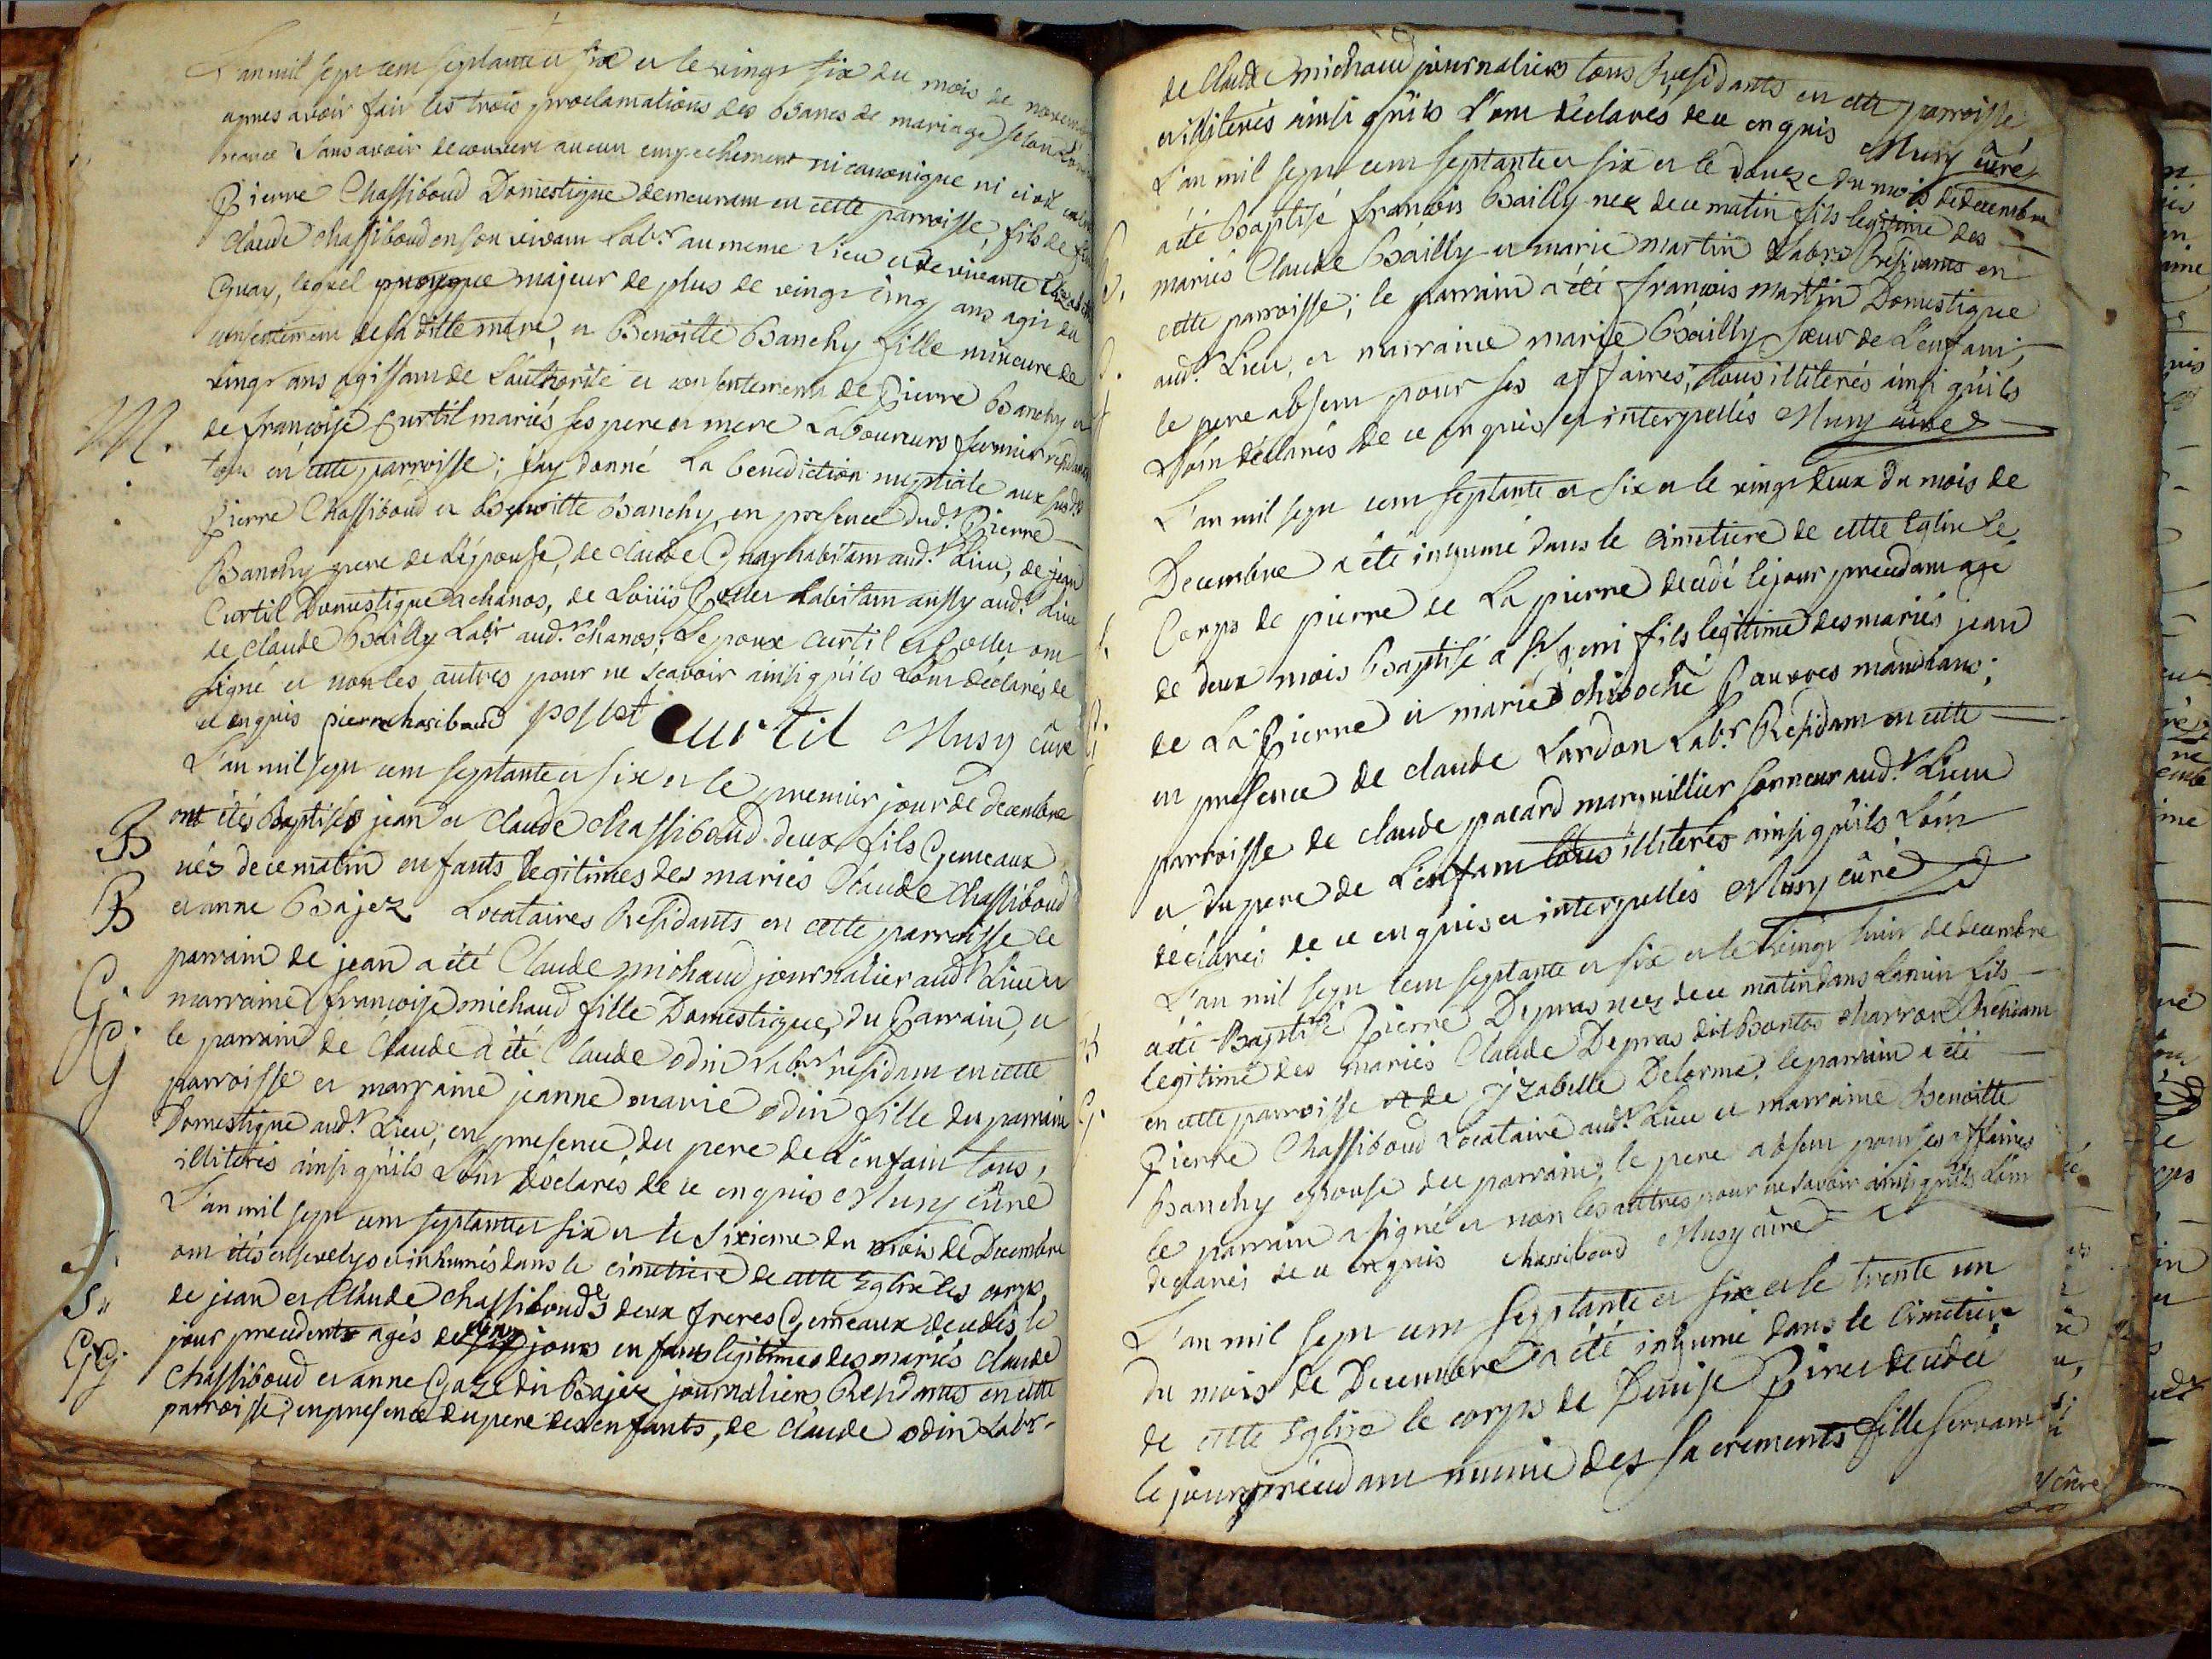 L'an mil sept cent septante et six et le vingt six du mois de novembre
apres avoir fait les trois proclamations des Bancs de mariage selon
sans avoir decouvert aucun empechement ni canonique ni civil entre
Pierre Chassiboud Domestique demeurant en cette parroisse, fils de feu
Claude chassiboud en son vivant labr. au meme Lieu et de vivante
Guay, lequel quoyque majeur de plus de vingt cinq ans agit du
consentement de sa ditte mere, et Benoitte Banchy fille mineure de
vingt ans agissant de L'authorité et consentement de Pierre Banchy et
de françoise Curtil mariés ses pere et mere Laboureurs fermier residants
M.
tous en cette parroisse; j'ay donné La benediction nuptiale aux susdts
Pierre Chassiboud et Benoitte Banchy, en presence dud.t Pierre
Banchy pere de L'épouse, de claude Guay habitant aud.t Lieu, de jean
Curtil Domestique a chanos, de Loüis habitant aussy aud.t Lieu
de claude Bailly Labr aud.t chanos; Lepoux curtil et ont
signé et non les autres pour ne scavoir ainsi qu'ils L'ont déclarés de
ce enquis pierre chasiboud pollet Curtil Musy cûré
L'an mil sept cent septante et six et le premier jour de decembre
B
ont étés Baptisés jean et claude chassiboud deux fils Gemeaux
nés de ce matin enfants Legitimes des mariés Claude Chassiboud
B
et anne Bajez Locataires Residants en cette parroisse le
parrain de jean a été Claude michaud journalier aud.t Lieu et
G.
marraine françoise michaud fille Domestique, du Parrain, et
G.
le parrain de Claude a été Claude odin Labr. residant en cette
parroisse et marraine jeanne marie odin fille du parrain
Domestique aud.t Lieu, en presence du pere de L'enfant tous,
illiterés ainsi qu'ils L'ont déclarés de ce enquis Musy cûré
L'an mil sept cent septante et six et le sixieme du mois de Decembre
ont étés ensevelys et inhumés dans le cimetiere de cette Eglise les corps
S.
de jean et Claude chassibouds deux freres Gemeaux decedés le
jour precedent agés de cinq jours enfants legitimes des mariés claude
G. G.
Chassiboud et anne Gaze dit Bajez journaliers Residants en cette
parroisse; en presence du pere des enfants, de claude odin Labr.
de Claude michaud journaliers tous Residants en cette parroisse
et illiterés ainsi qu'ils L'ont déclarés de ce enquis Musy cûré
L'an mil sept cent septante et six et le douze du mois de decembre
a été Baptisé françois Bailly nez de ce matin fils legitime des
mariés Claude Bailly et marie martin Labrs Residants en
cette parroisse; le parrain a été françois martin Domestique
aud.t Lieu, et marraine marie Bailly sœur de L'enfant;
le pere absent pour ses affaires, tous illiterés ainsi qu'ils
L'ont déclarés de ce enquis et interpellés Musy cûré
L'an mil sept cent septante et six et le vingt deux du mois de
Decembre a été inhumé dans le cimetiere de cette Eglise Le
Corps de pierre de La pierre decedé le jour precedant agé
de deux mois Baptisé a fils legitime des mariés jean
de La Pierre et marie chivoché Pauvres mandians;
en presence de claude Lardon Labr Residant en cette
parroisse de claude pacard marguillier sonneur aud.t Lieu
et du pere de L'enfant tous illiterés ainsi qu'ils L'ont
déclarés de ce enquis et interpellés Musy cûré
L'an mil sept cent septante et six et le vingt huit de decembre
B
a été Baptisé Pierre Depras nez de ce matin dans La nuit fils
legitime des mariés Claude Depras dit charron Residant
G.
en cette parroisse et de jzabelle Delorme; le parrain a été
Pierre Chassiboud Locataire aud.t Lieu et marraine Benoitte
Banchy epouse du parrain; le pere absent pour ses affaires
le parrain a signé et non les autres pour ne savoir ainsi qu'ils L'ont
déclarés de ce enquis chassiboud Musy cûré
L'an mil sept cent septante et six et le trente un
du mois de Decembre a été inhumé dans le Cimetiere
de cette Eglise le corps de Denise decedée
le jour precedant munie des sacrements fille servant
cûré